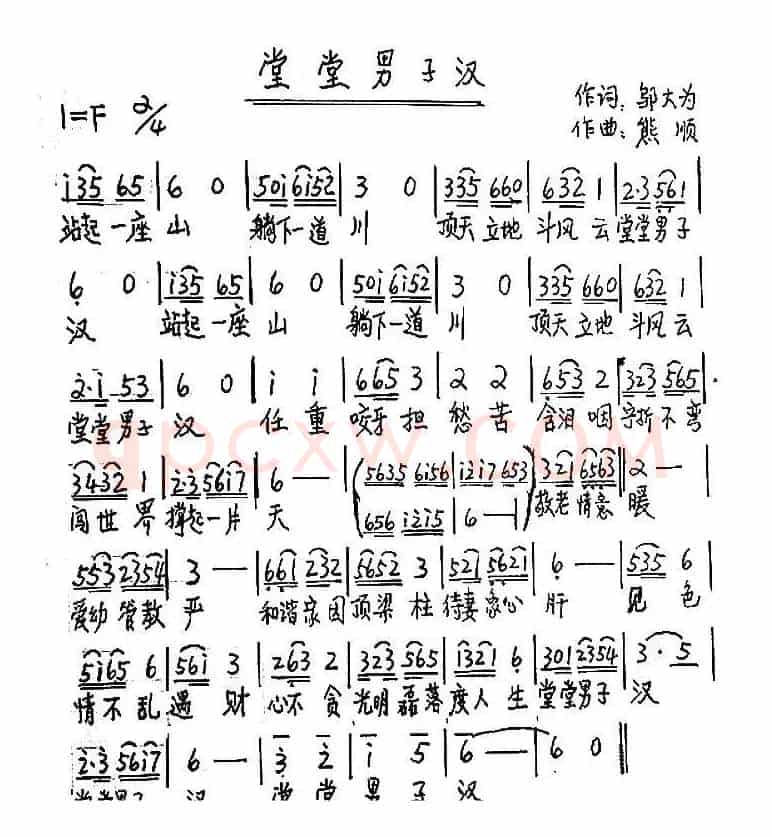 堂堂男子汉
1=F 2/4
作词：邬大为
作曲：熊 顺
i35 65 | 6 0 | 50i 6i52 | 3 0 | 335 660 | 632 1 | 2·3 561 |
站起一座山 躺下一道川 顶天立地 斗风云 堂堂男子
6 0 | i35 65 | 6 0 | 50i 6i52 | 3 0 | 335 660 | 632 1 |
汉 站起一座山 躺下一道川 顶天立地 斗风云
2·i 53 | 6 0 | i i | 665 3 | 2 2 | 653 2 | 323 565 |
堂堂男子汉 任重 咬牙担 愁苦 含泪咽 宁折不弯
3432 1 | 2·356i7 | 6 — | (5635 6i56 | i2i7 653 | 321 6563 | 2 —
656 i2i5 | 6 — )
闯世界 撑起一片天 敬老情意暖
553 2354 | 3 — | 661 232 | 5652 3 | 521 5621 | 6 — | 535 6
爱幼管教严 和谐家园 顶梁柱 待妻家心肝 见色
5i65 6 | 56i 3 | 263 2 | 323 565 | i321 6 | 301 2354 | 3·5 |
情不乱 遇财心不贪 光明磊落度人生 堂堂男子汉
2·3 56i7 | 6 — | 3 2 | i 5 | 6 — | 6 0 ‖
堂堂男子汉 堂堂男子汉
qpcxw.COM